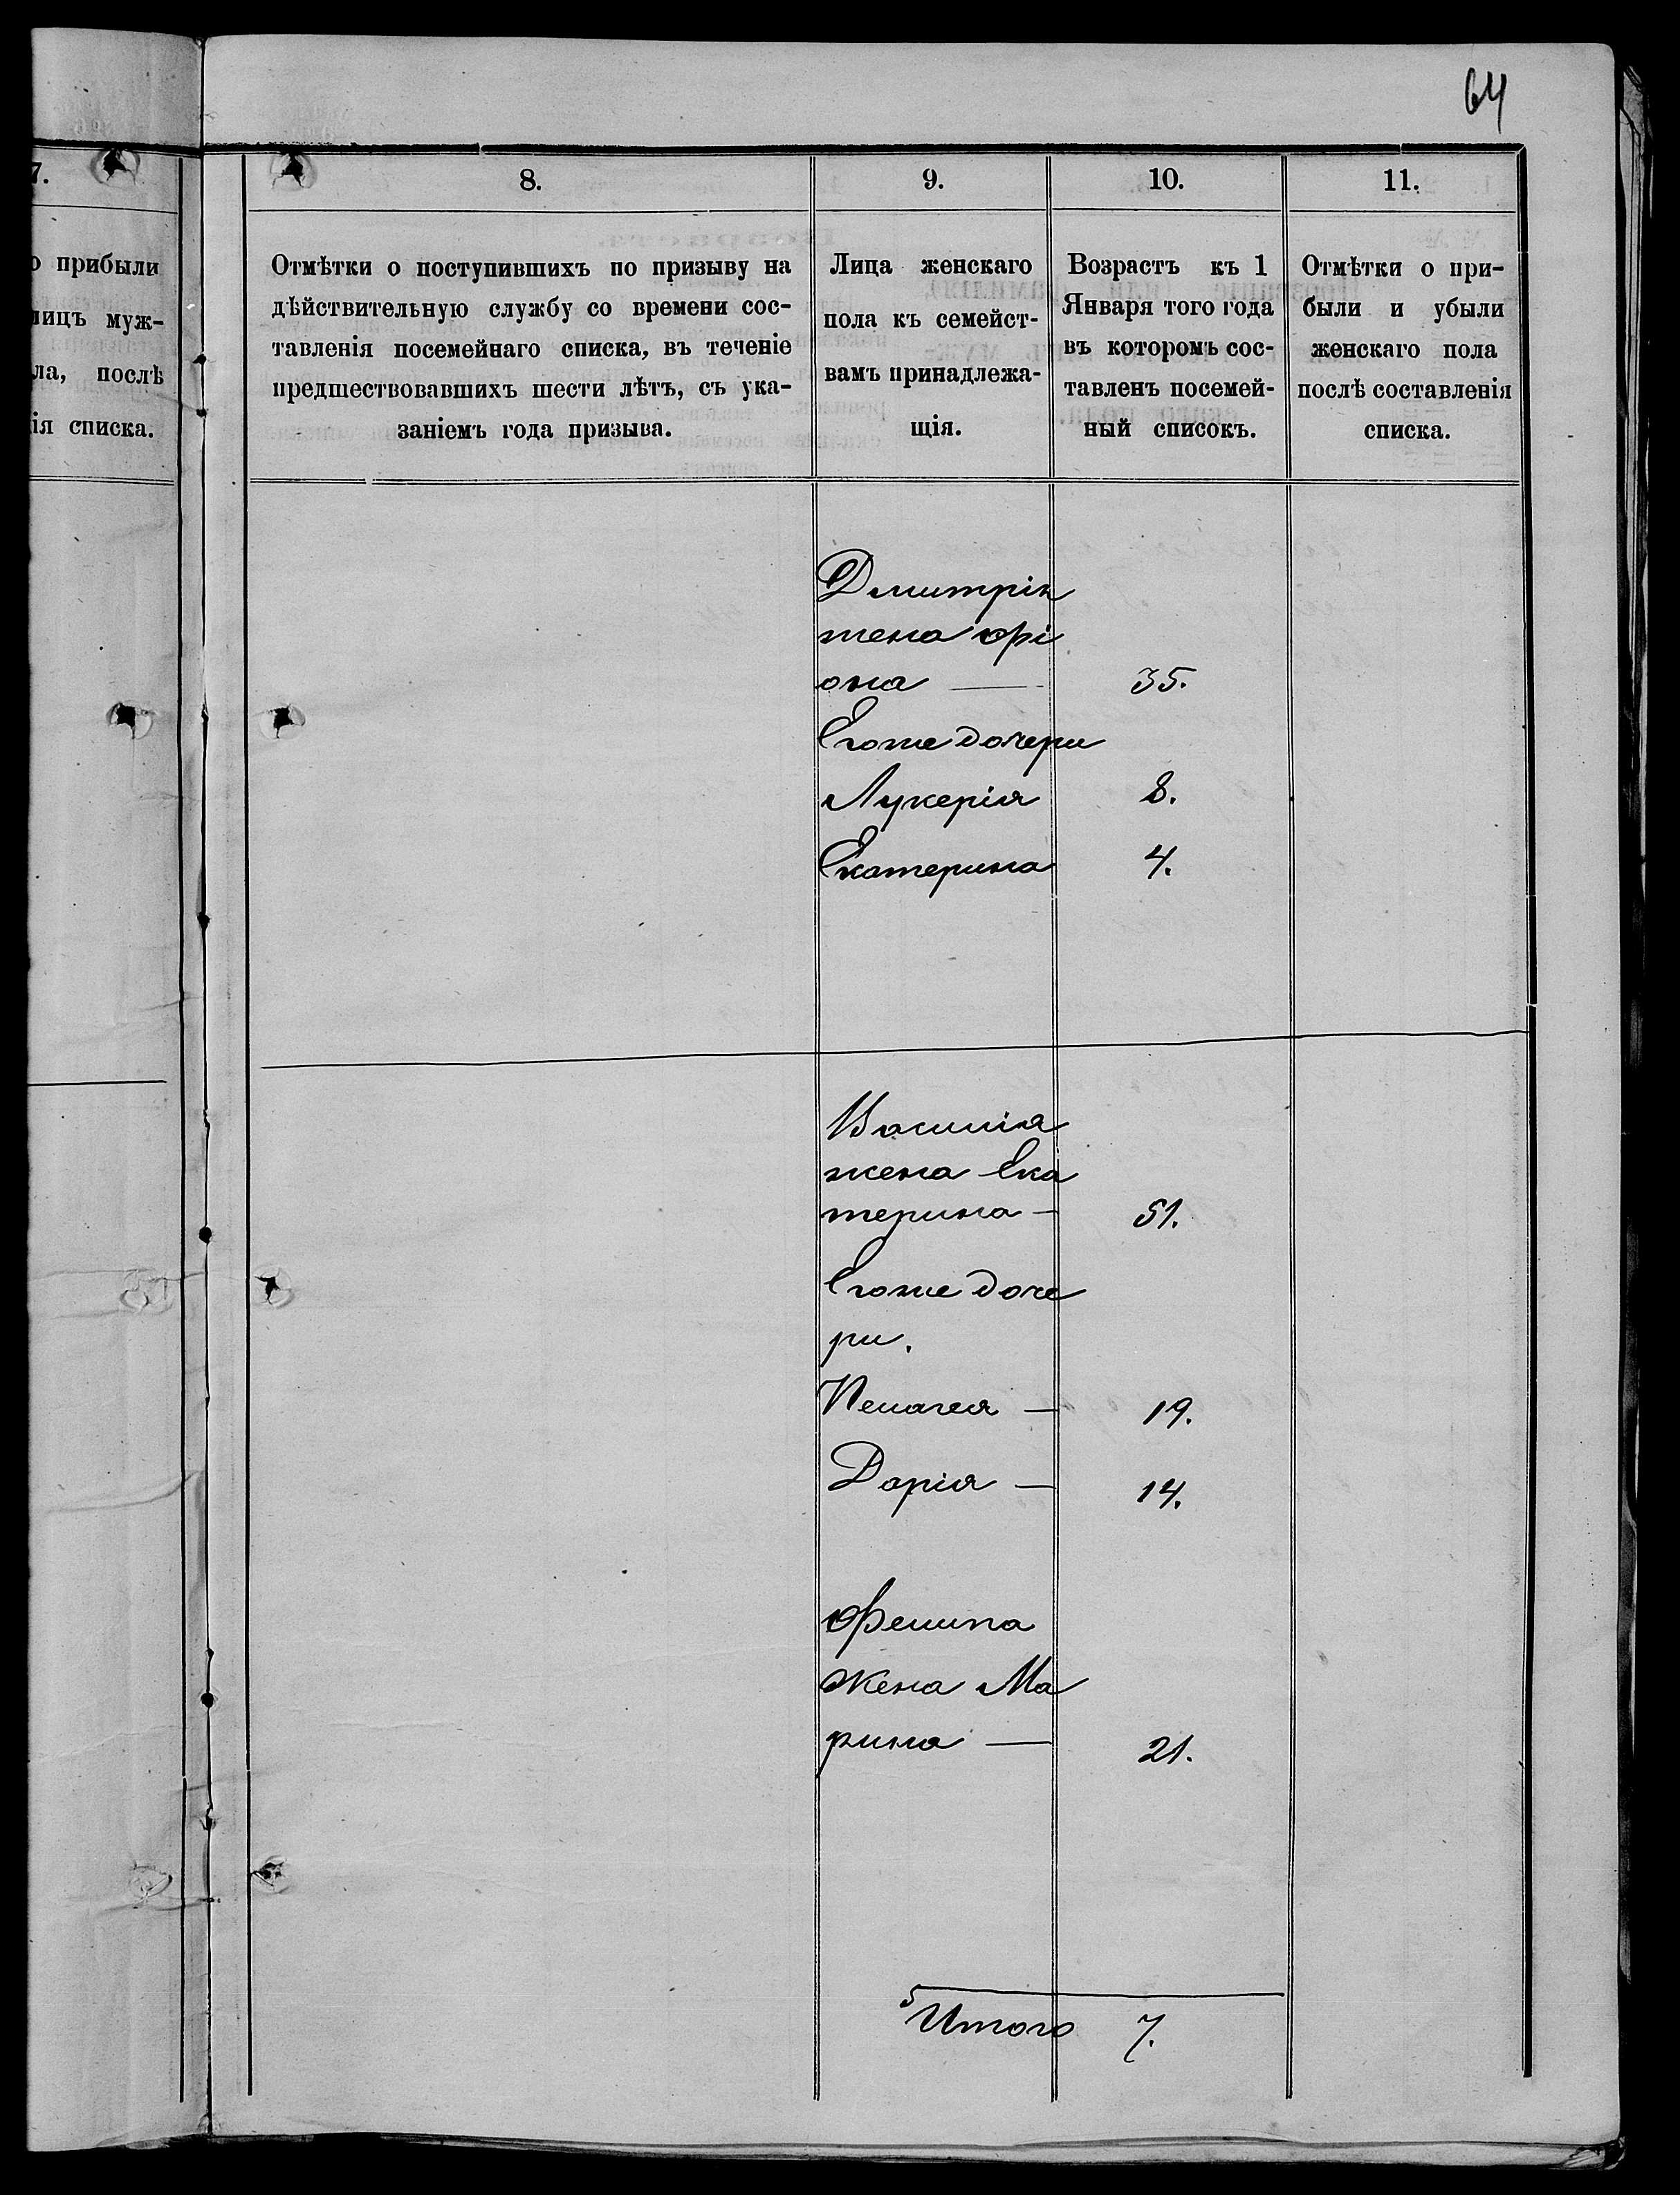 64
7.
8.
9.
10.
11.
о прибыли
лицъ муж-
ла, послѣ
ія списка.
Отмѣтки о поступившихъ по призыву на
дѣйствительную службу со времени сос-
тавленія посемейнаго списка, въ теченіе
предшествовавшихъ шести лѣтъ, съ ука-
заніемъ года призыва.
Лица женскаго
пола къ семейст-
вамъ принадлежа-
щія.
Возрастъ къ 1
Января того года
въ которомъ сос-
тавленъ посемей-
ный списокъ.
Отмѣтки о при-
были и убыли
женскаго пола
послѣ составленія
списка.
Дмитрія
жена Фі
она — 35.
Егоже дочери
Лукерія 8.
Екатерина 4.
Василія
жена Ека
терина — 51.
Егоже доче
ри.
Пелагея — 19.
Дарія — 14.
Филипа
жена Ма
рина — 21.
Итого 7.